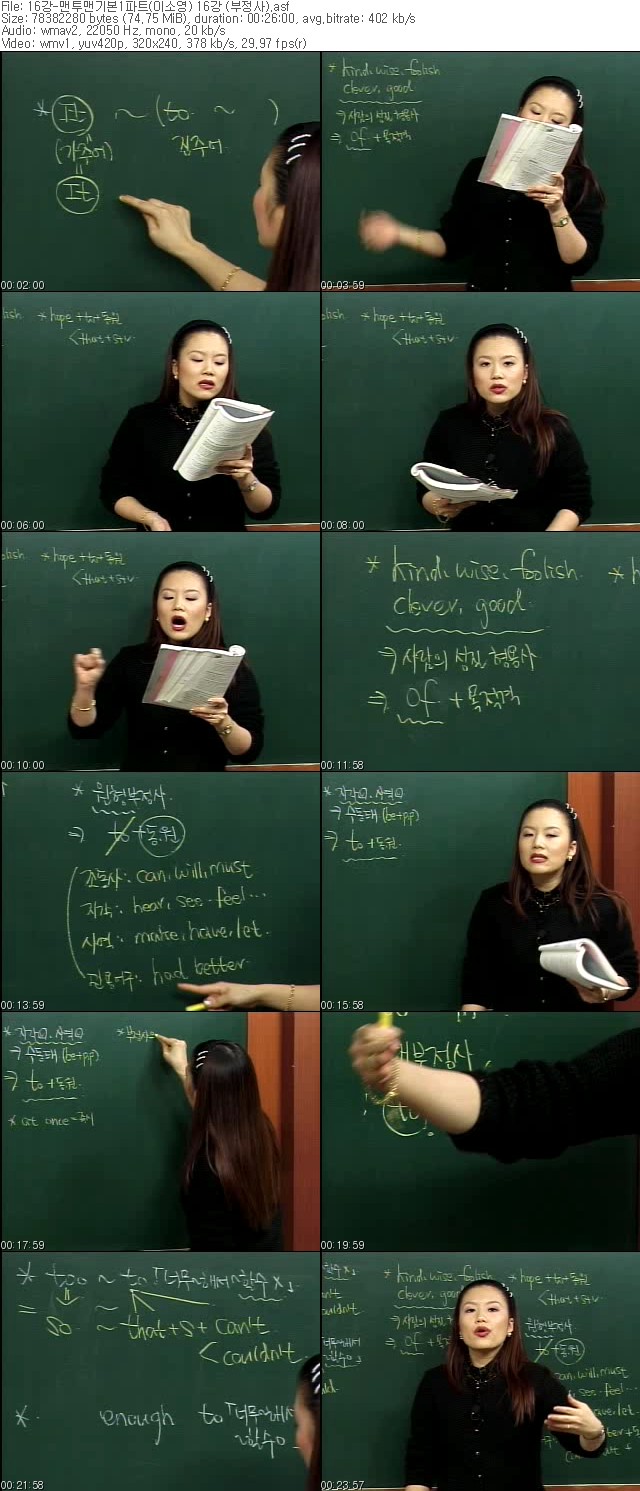 File: 16강-맨투맨기본1파트(이소영) 16강 (부정사).asf
Size: 78382280 bytes (74,75 MiB), duration: 00:26:00, avg,bitrate: 402 kb/s
Audio: wmav2, 22050 Hz, mono, 20 kb/s
Video: wmv1, yuv420p, 320x240, 378 kb/s, 29,97 fps(r)
* It ~ (to ~ )
(가주어) 진주어
It
00:02:00
* kind, wise, foolish
clever, good
→ 사람의 성질 형용사
⇒ of + 목적격
00:03:59
lish. * hope + to + 동원
< that + s + v
00:06:00
lish. * hope + to + 동원
< that + s + v
00:08:00
olish. * hope + to + 동원
< that + s + v
00:10:00
* kind, wise, foolish. * h
clever, good.
→ 사람의 성질 형용사
⇒ of + 목적격
00:11:58
* 원형부정사.
⇒ to + 동원
조동사: can, will, must
지각: hear, see, feel...
사역: make, have, let.
관용어구: had better
00:13:59
* 지각V, 사역V
→ 수동태 (be+p.p)
⇒ to + 동원.
00:15:58
* 지각V, 사역V * 부정사
→ 수동태 (be+p.p)
⇒ to + 동원.
* at once = 즉시
00:17:59
부정사
to
00:19:59
* too ~ to 「너무~해서 ~할수 x」
= so ~ that + s + can't
< couldn't
* enough to 「너무~해서
~할수 o
00:21:58
* kind, wise, foolish * hope + to + 동원
clever, good < that + s + v
→ 사람의 성질 원형부정사
⇒ of + 목 to + 동원
can, will, must
see, feel...
have, let.
00:23:57